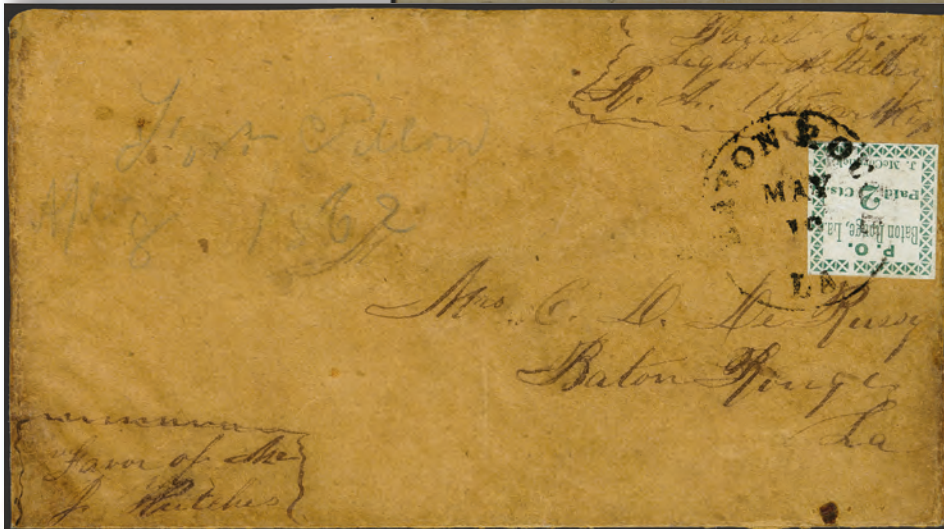 Point Coup
Light Artillery
R. A.
Fort Pillow
8 1862
BATON ROUGE
MAY
LA
P. O.
Baton Rouge, La.
2
Paid Cts.
J. McCormick
Mrs. C. D. De Russy
Baton Rouge
La
Favor of Mr
J. Hutches